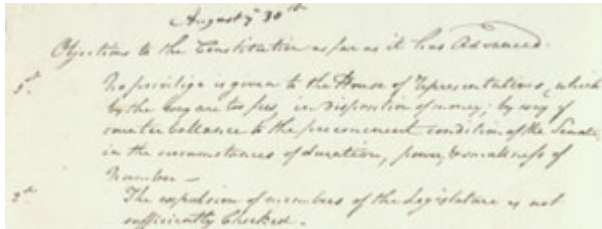 August ye 30th
Objections to the Constitution as far as it has Advanced.
1st. No privilige is given to the House of Representatives, which
by the way are too few, in disposition of money; by way of
counter ballance to the preeminent condition of the Senate,
in the circumstances of duration, power, & smallness of
Number —
2d. The expulsion of members of the Legislature is not
sufficiently Checked.